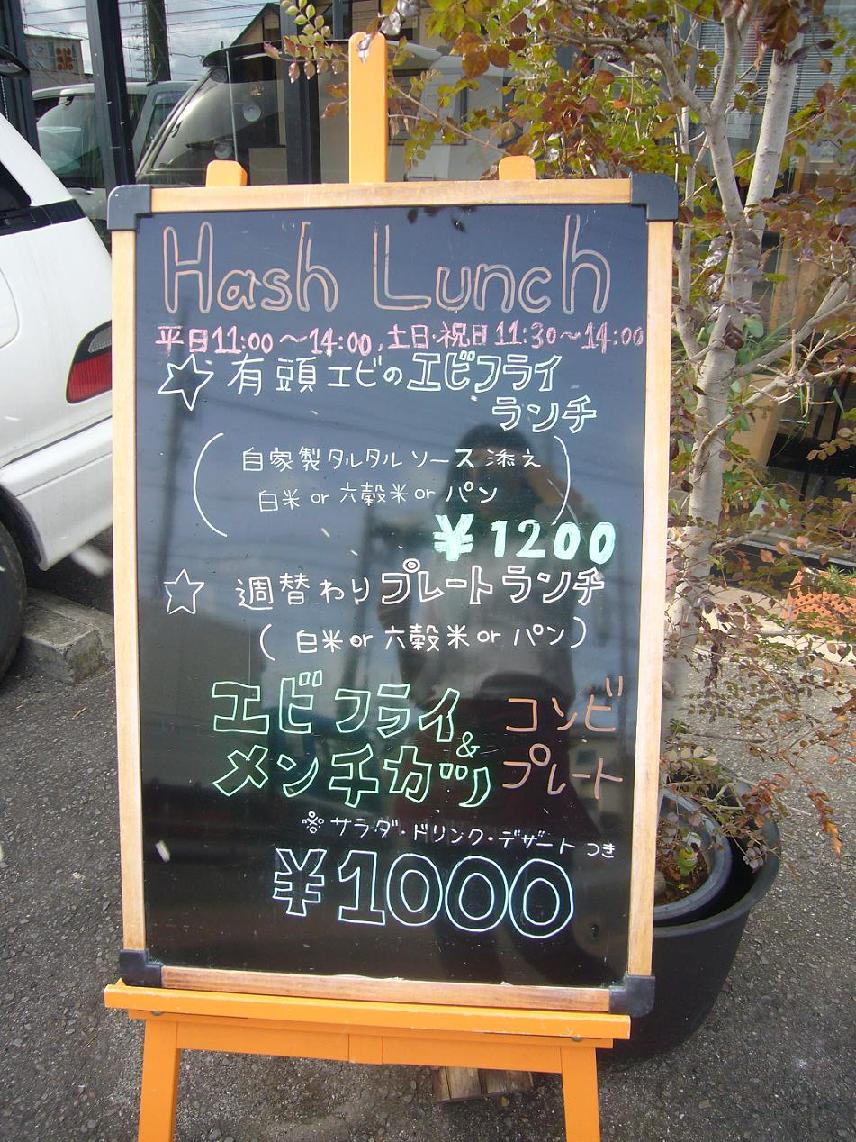 Hash Lunch
平日11:00～14:00,土日・祝日11:30～14:00
☆ 有頭エビのエビフライ
ランチ
(自家製タルタルソース添え
白米or六穀米orパン)
¥1200
☆ 週替わりプレートランチ
(白米or六穀米orパン)
エビフライ& コンビ
メンチカツ プレート
※サラダ・ドリンク・デザートつき
¥1000